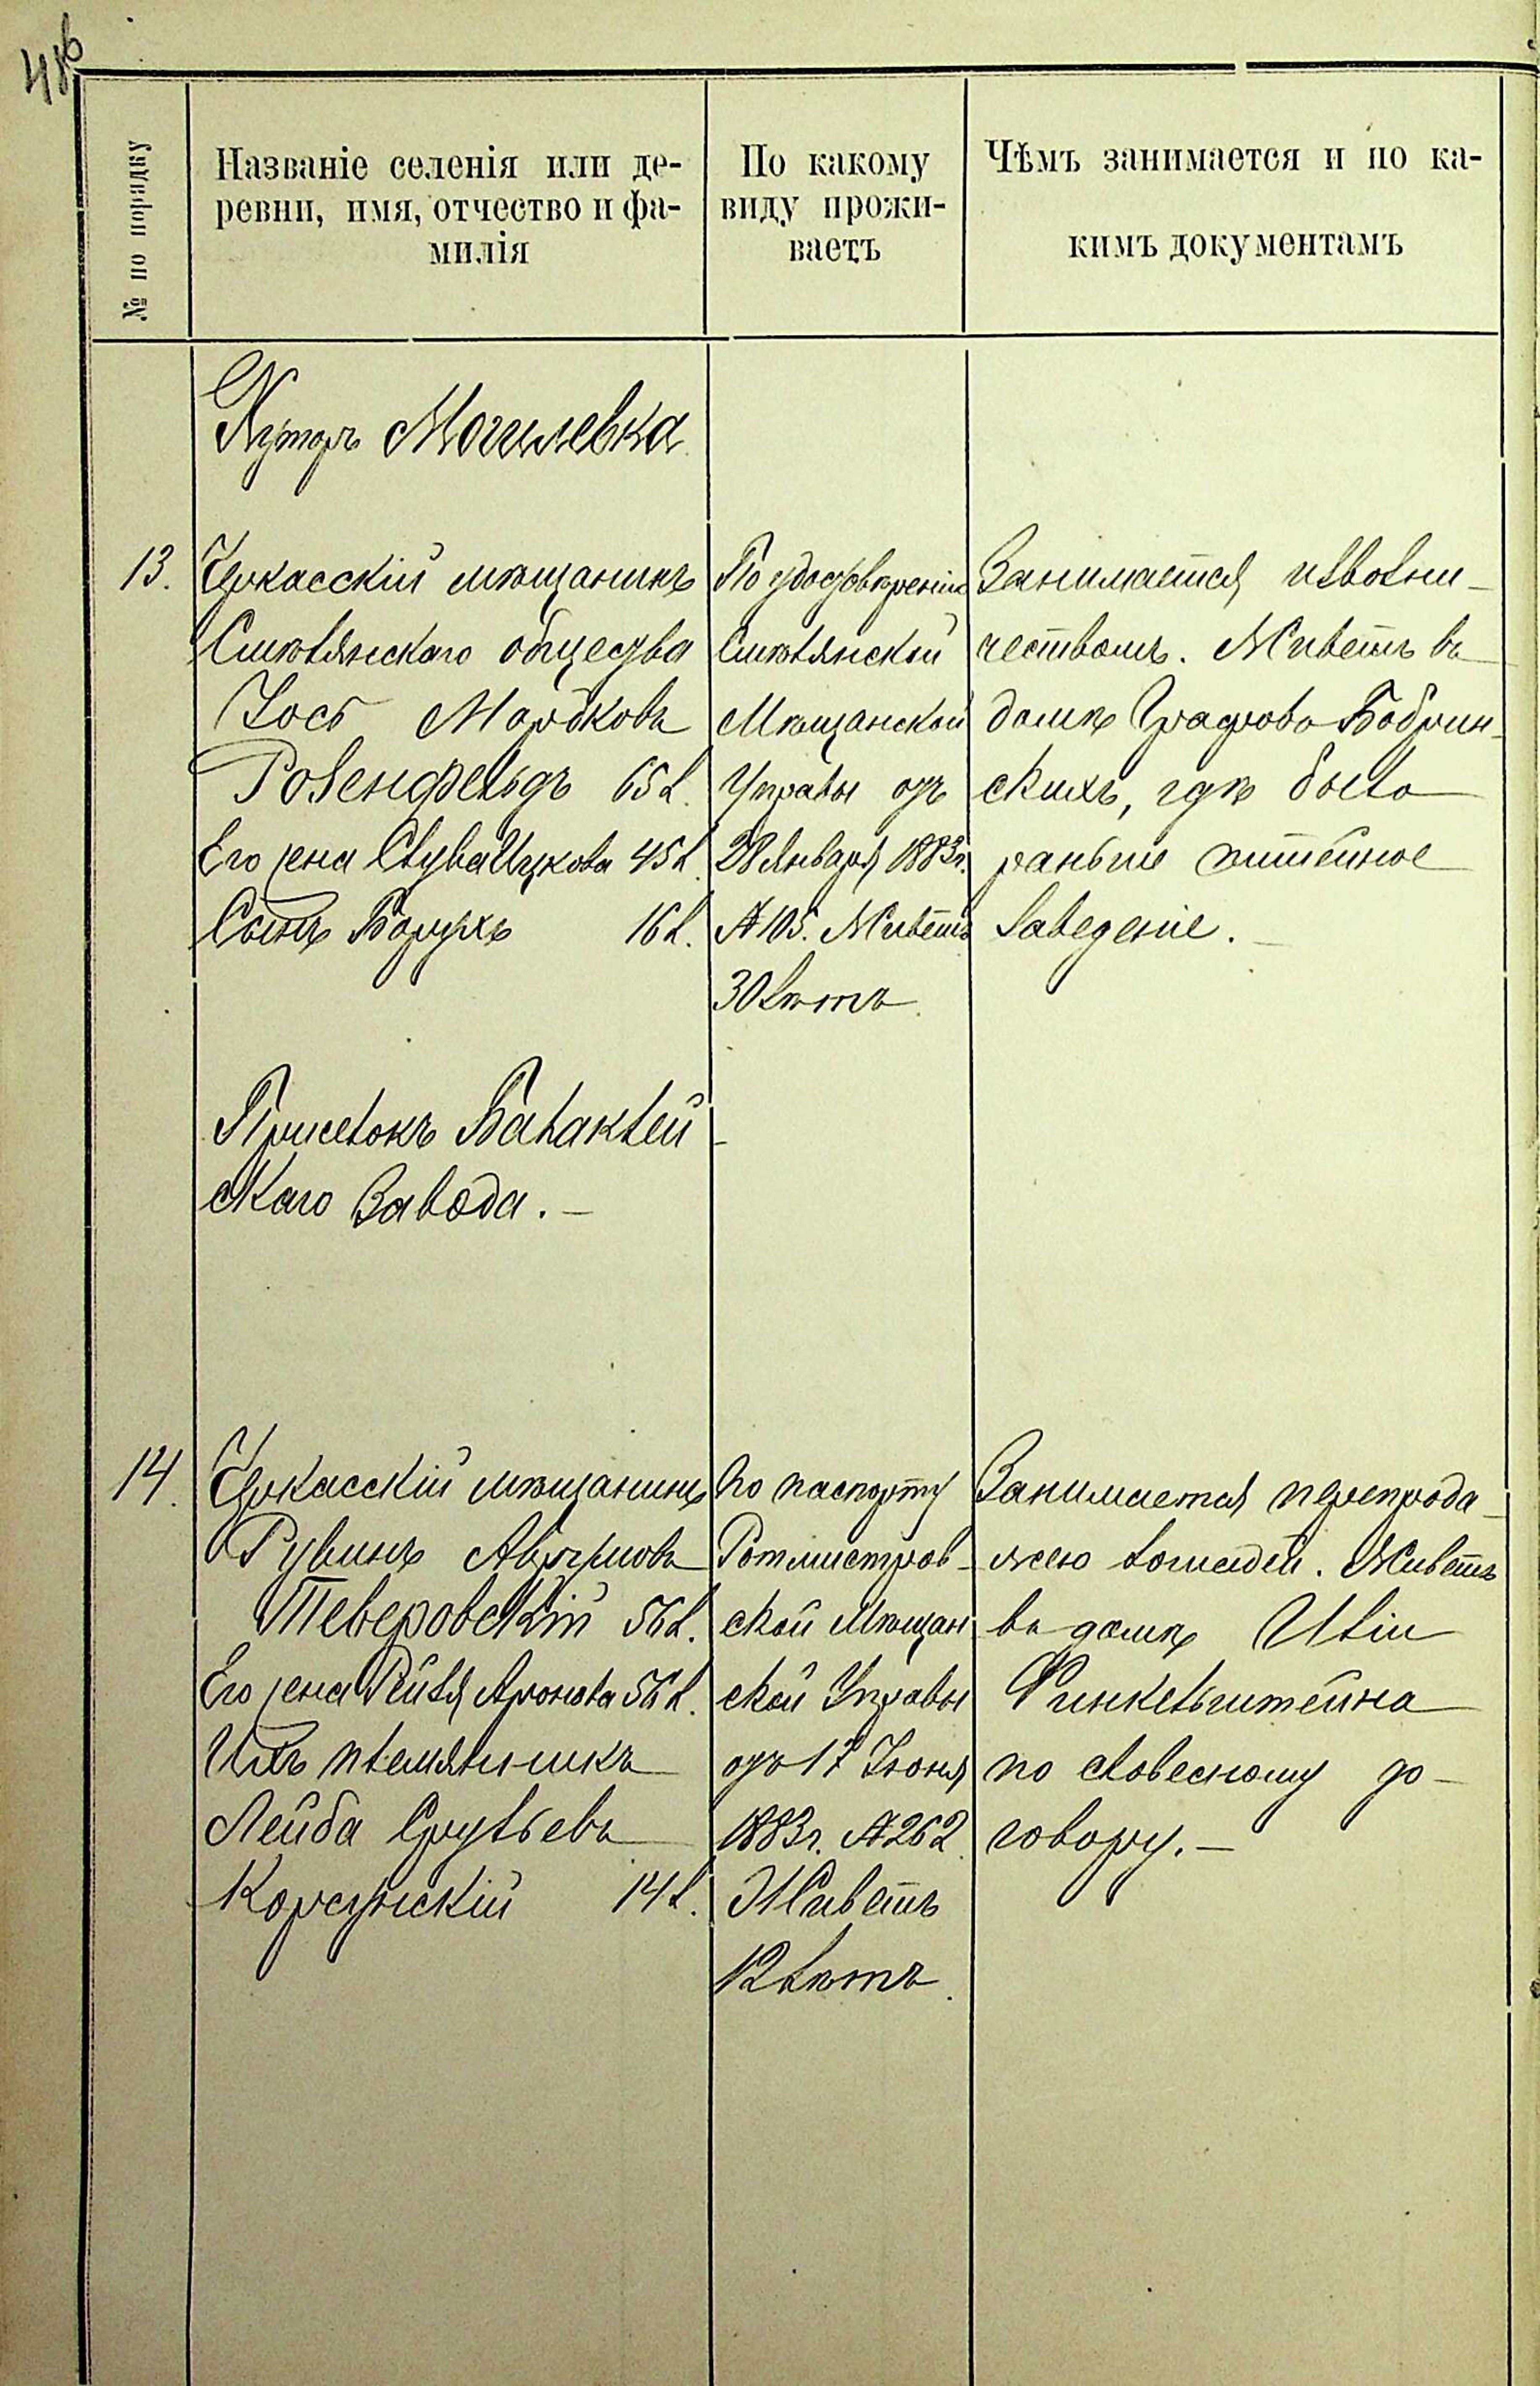 № по порядку
Названіе селенія или де-
ревни, имя, отчество и фа-
милія
По какому
виду прожи-
ваетъ
Чѣмъ занимается и по ка-
кимъ документамъ
Хуторъ Могилевка
13.
Черкасскій мѣщанинъ
Смѣлянскаго общества
Іось Мордковъ
Розенфельдъ 65 л.
Его жена Ицкова 45 л.
Сынъ Борухъ 16 л.
По удостовѣренію
Смѣлянской
Мѣщанской
Управы отъ
28 Января 1883 г.
№ 105. Живетъ
30 лѣтъ.
Занимается извозни-
чествомъ. Живетъ въ
домѣ Графовъ Бобрин-
скихъ, гдѣ было
раньше питейное
заведеніе.
Приселокъ Балаклей-
скаго Завода.
14.
Черкасскій мѣщанинъ
Рувинъ Аврумовъ
Теверовскій 56 л.
Его жена Рейзя Аронова 56 л.
Ихъ племянникъ
Лейба Срульевъ
Корсунскій 14 л.
По паспорту
Ротмистров-
ской Мѣщан-
ской Управы
отъ 17 Іюня
1883 г. № 262.
Живетъ
12 лѣтъ.
Занимается перепрода-
жею лошадей. Живетъ
въ домѣ Иліи
Финкельштейна
по словесному до-
говору.